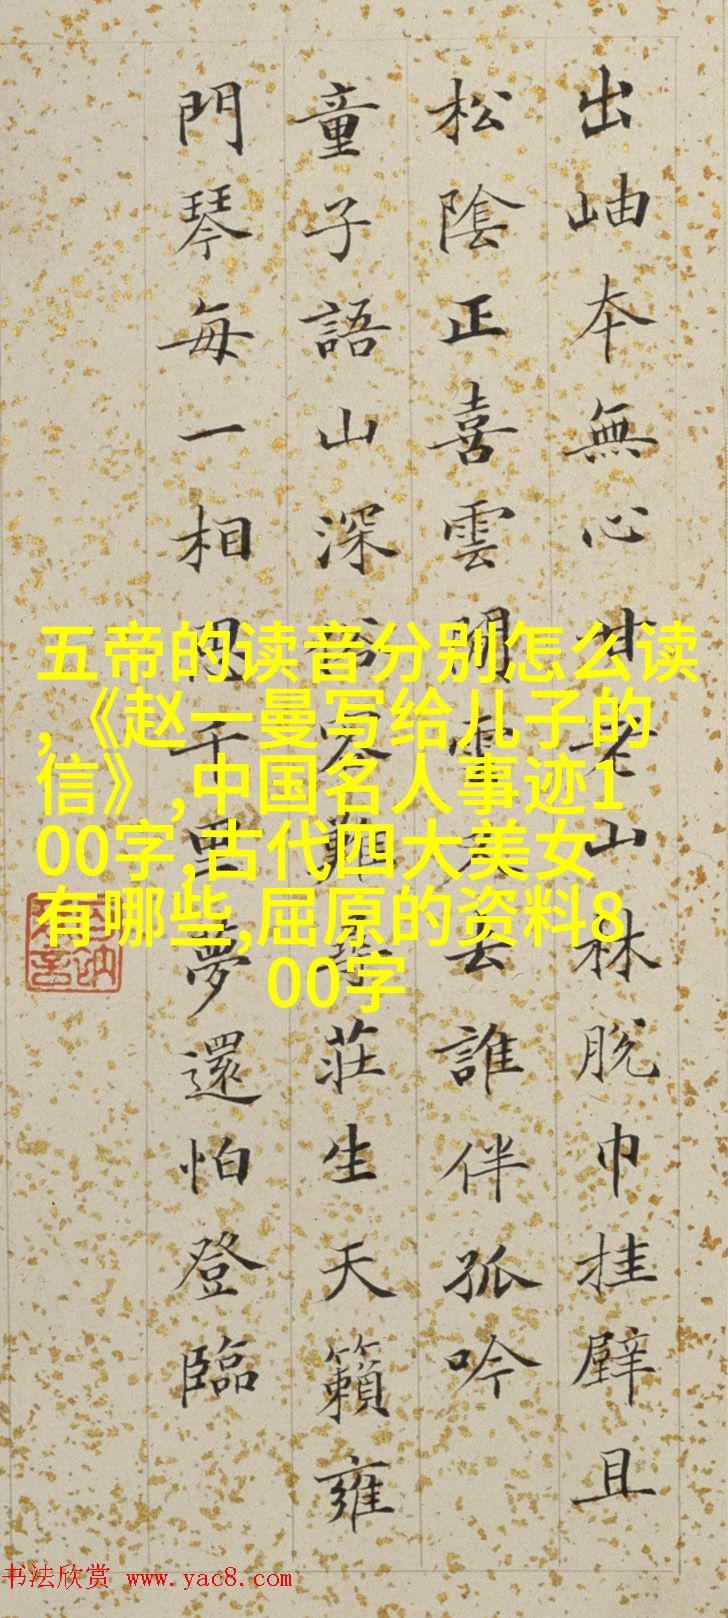 出岫本無心甘老山林脫巾挂壁且
松陰正喜雲閒雲去誰伴孤吟
童子語山深難尋莊生天籟雍
門琴每一相思千里夢還怕登臨
五帝的读音分别怎么读
,《赵一曼写给儿子的
信》,中国名人事迹1
00字,古代四大美女
有哪些,屈原的资料8
00字
书法欣赏 www.yac8.com